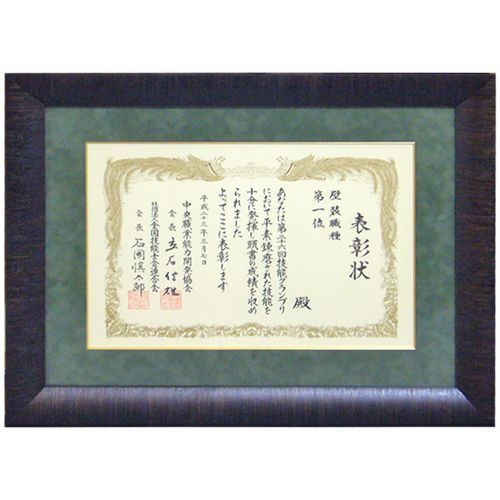 表彰状
壁装職種
第一位
殿
あなたは第二十六回技能グランプリ
において平素錬磨された技能を
十分に発揮し頭書の成績を収め
られました
よってここに表彰します
平成二十三年三月七日
中央職業能力開発協会
会長 立石信雄
社団法人全国技能士会連合会
会長